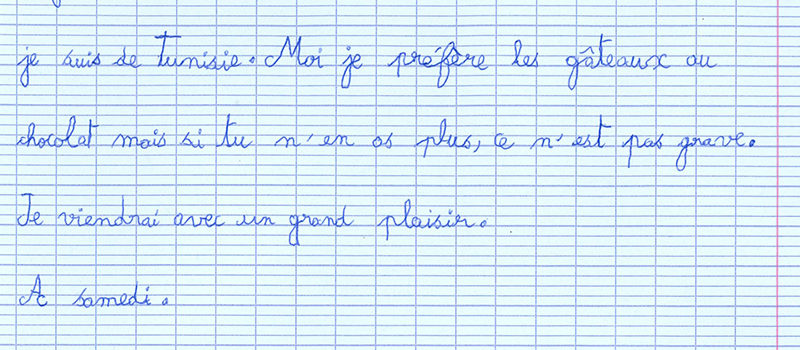 je suis de Tunisie. Moi je préfère les gâteaux au
chocolat mais si tu n'en as plus, ce n'est pas grave.
Je viendrai avec un grand plaisir.
A samedi.